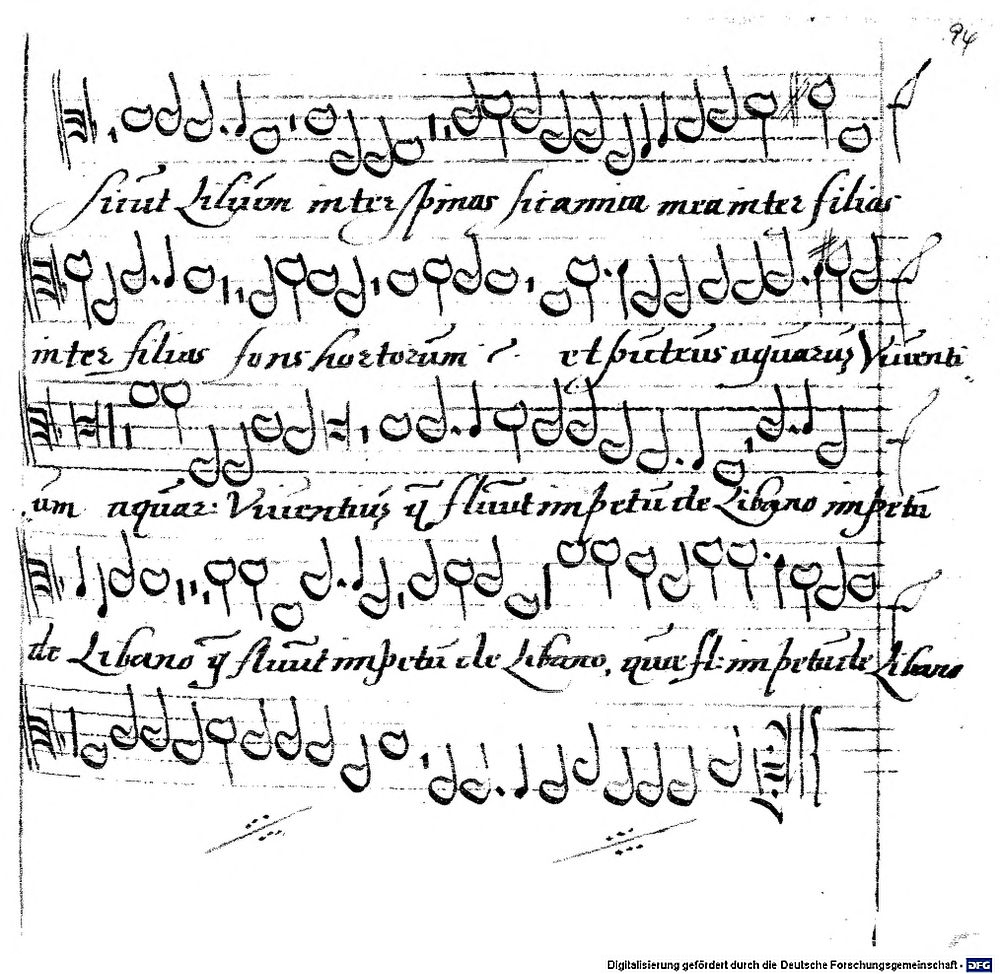 94
Sicut Lilium inter spinas sic amica mea inter filias
inter filias fons hortorum et puteus aquarum Viventi
um aquar: Viventiuʒ q̄ fluūt impetū de Libano impetū
de Libano q̄ fluūt impetū de Libano, quæ fl: impetū de Libano
Digitalisierung gefördert durch die Deutsche Forschungsgemeinschaft - DFG